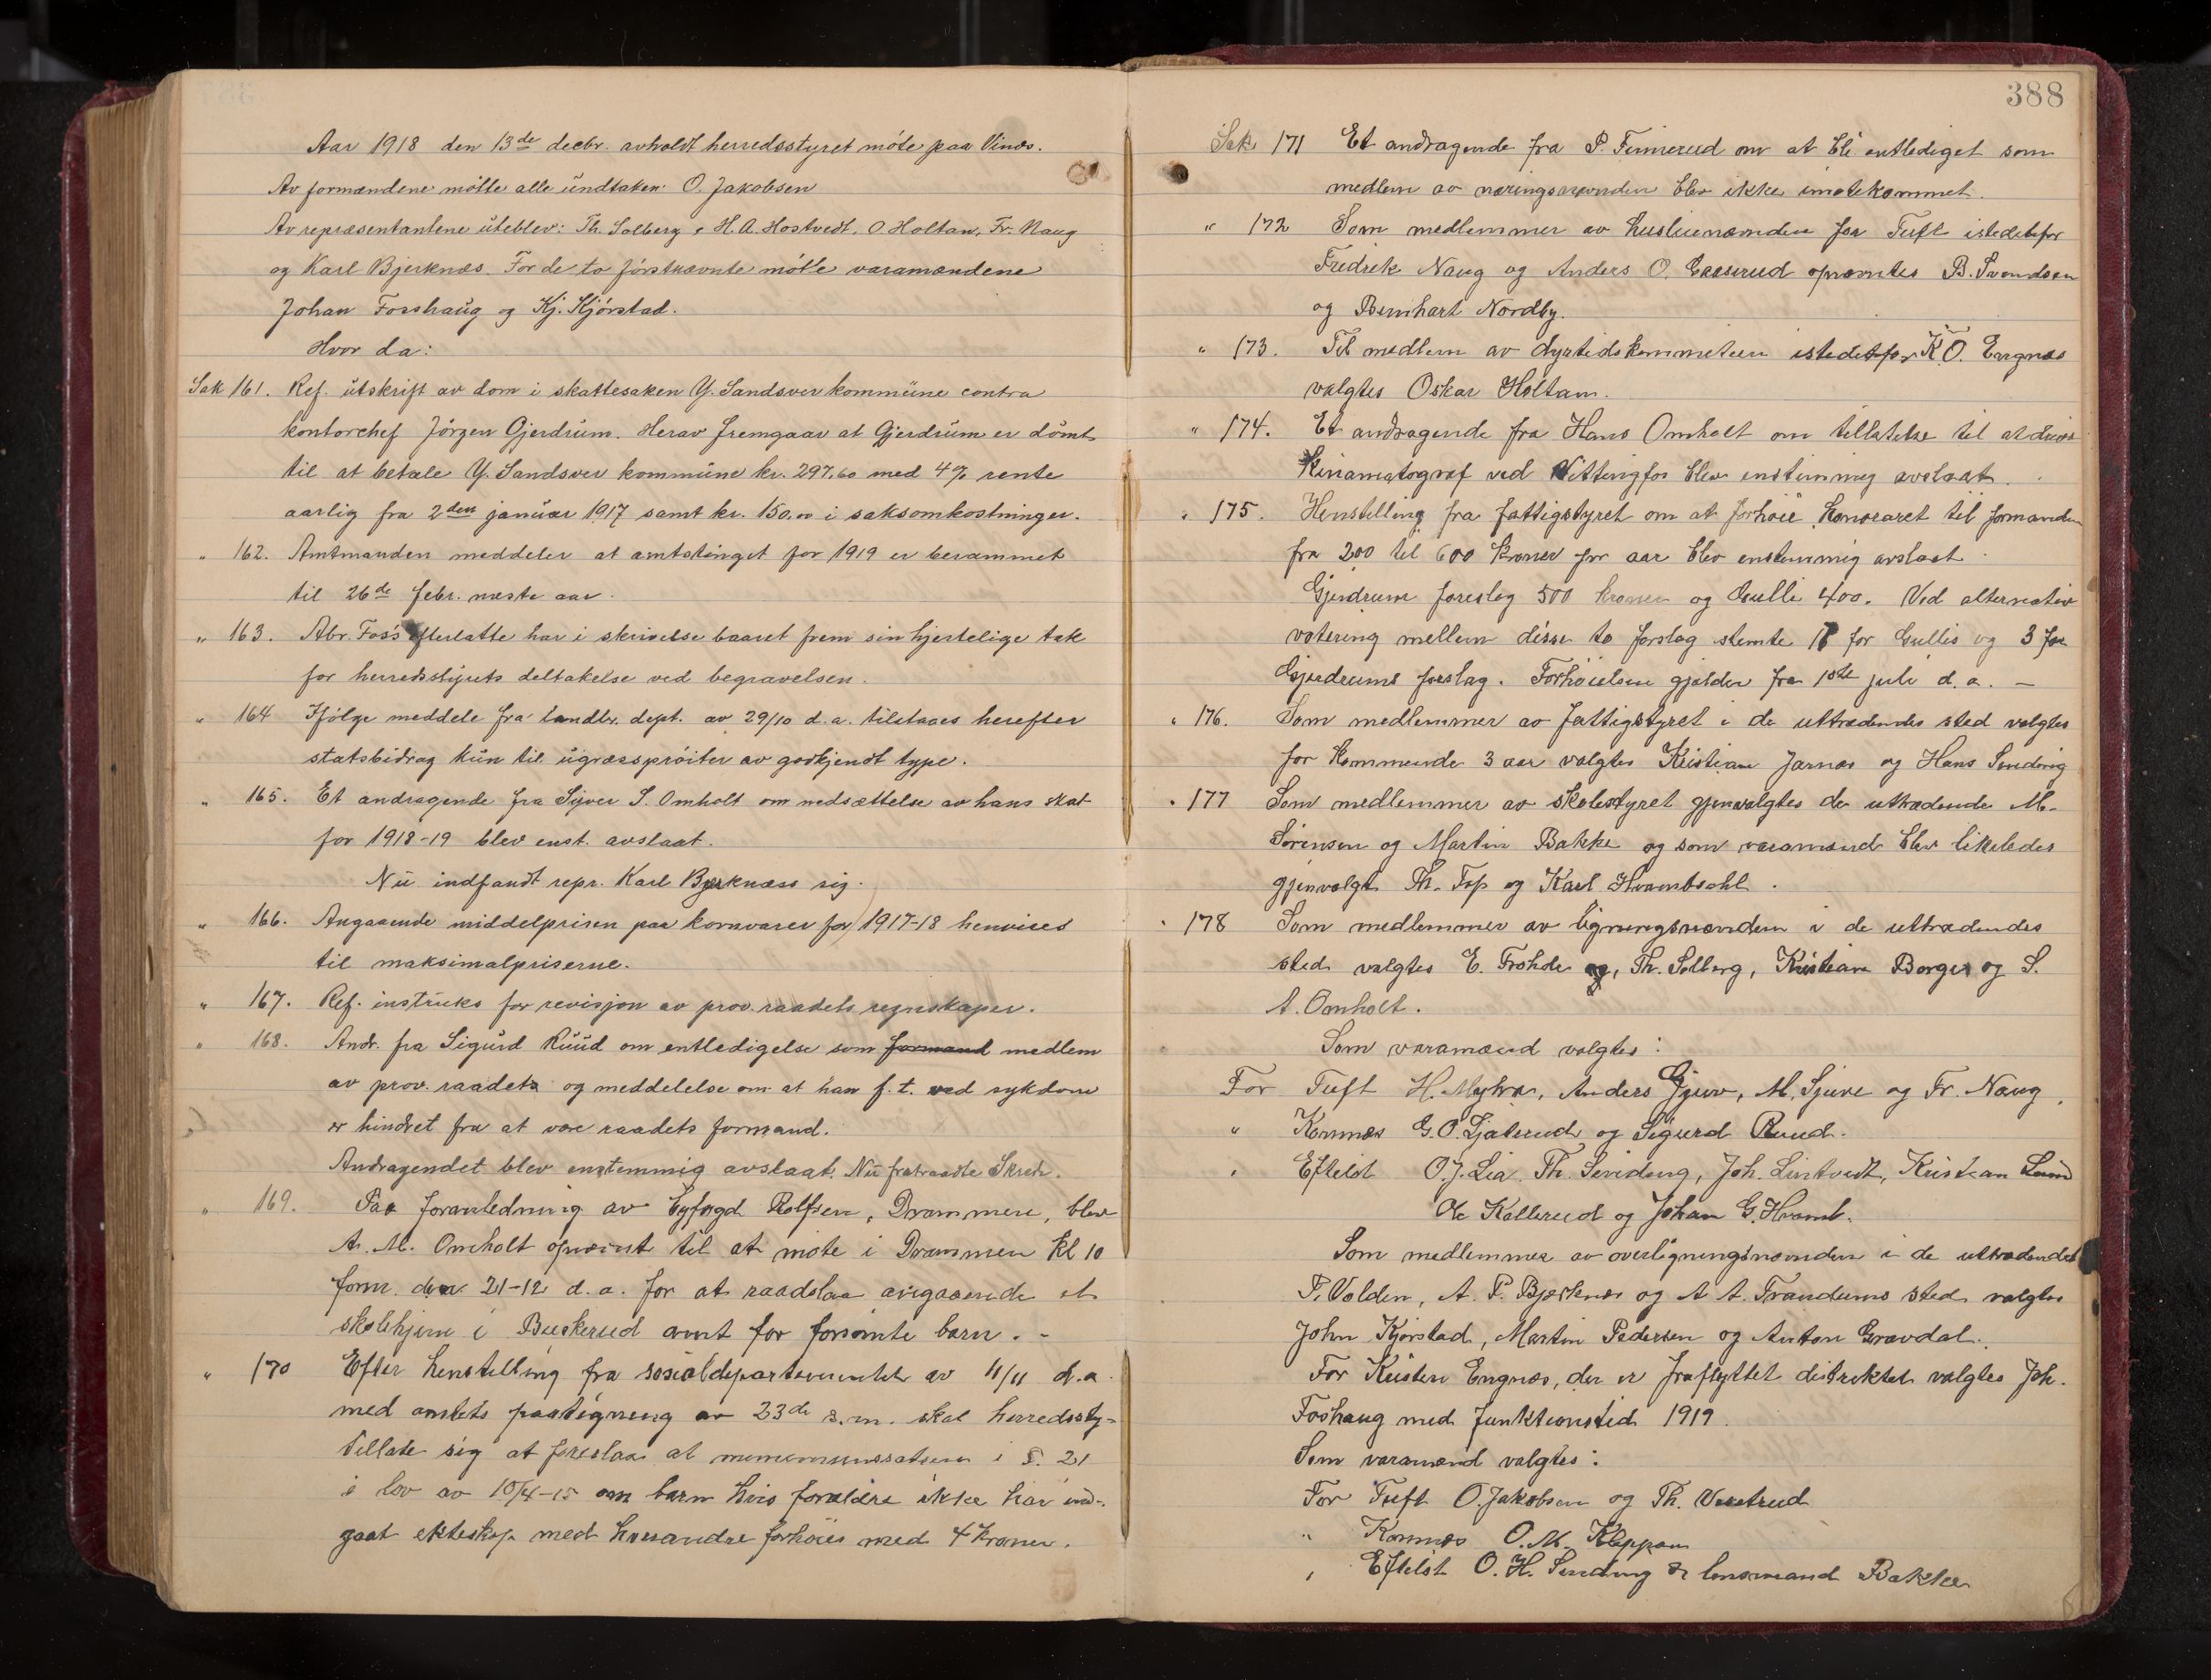 Aar 1918 den 13de decbr. avholdt herredsstyret möte paa Vinæs.
Av formændene mötte alle undtaken O. Jakobsen
Av repræsentantene uteblev: Th. Solberg, H. A. Hostvedt, O Holtan, Fr. Naug
og Karl Bjerknæs. For de to förstnævnte mötte varamændene
Johan Forshaug og Kj. Kjörstad.
Hvor da:
Sak 161. Ref. utskrift av dom i skattesaken Y. Sandsver kommune contra
kontorchef Jörgen Gjerdrum. Herav fremgaar at Gjerdrum er dömt
til at betale Y. Sandsver kommune kr. 297,60 med 4% rente
aarlig fra 2den januar 1917 samt kr. 150,00 i saksomkostninger.
" 162. Amtmanden meddeler at amtstinget for 1919 er berammet
til 26de febr. næste aar.
" 163. Abr. Foss's efterlatte har i skrivelse baaret frem sin hjertelige tak
for herredsstyrets deltakelse ved begravelsen.
" 164 Ifölge meddele fra landbr. dept. av 29/10 d.a. tilstaaes herefter
statsbidrag kun til ugræsspröiter av godkjendt type.
" 165. Et andragende fra Syver S. Omholt om nedsættelse av hans skat
for 1918-19 blev enst. avslaat.
Nu indfandt repr. Karl Bjerknæss sig.
" 166. Angaaende middelprisen paa kornvarer for 1917-18 henvises
til maksimalpriserne.
" 167. Ref. instruks for revisjon av prov. raadets regnskaper.
" 168. Andr. fra Sigurd Ruud om entledigelse som formand medlem
av prov. raadets og meddelelse om at han f.t. ved sykdom
er hindret fra at være raadets formand.
Andragendet blev enstemmig avslaat. Nu fratraadte Skreh.
" 169. Paa foranledning av Byfogd Rolfsen, Drammen, blev
A. M. Omholt opnævnt til at möte i Drammen kl 10
form. den 21-12 d.a. for at raadslaa angaaende et
skolehjem i Buskerud amt for forsömte barn. -
" 170 Efter henstilling fra socialdepartementet av 11/11 d.a.
med amtets paategning av 23de s.m. skal herredssty=
tillate sig at foreslaa at minimumssatsene i §. 21
i lov av 10/4-15 om barn hvis forældre ikke har ind-
gaat ekteskap med hverandre forhöies med 4 kroner.
388
Sak 171 Et andragende fra P. Finnerud om at bli entlediget som
medlem av næringsnævnden blev ikke imötekommet.
" 172 Som medlemmer av husleienævnden for Tuft istedetfor
Fredrik Naug og Anders O. Baaserud opnævntes B. Svendsen
og Bernhart Nordby.
" 173. Til medlem av dyrtidskommiteen istedetfor K. O. Engnæs
valgtes Oskar Holtan.
" 174. Et andragende fra Hans Omholt om tillatelse til at drive
Kinamatograf ved Vittingfos blev enstimmig avslaat.
" 175. Henstilling fra fattigstyret om at forhöie honoraret til formanden
fra 200 til 600 kroner pr aar blev enstemmig avslaat.
Gjerdrum foreslog 500 kroner og Gulli 400. Ved alternativ
votering mellem disse to forslag stemte 17 for Gullis og 3 for
Gjerdrums forslag. Forhöielsen gjælder fra 1ste juli d.a. -
" 176. Som medlemmer av fattigstyret i de uttrædendes sted valgtes
for kommende 3 aar valgtes Kristian Jarnæs og Hans Sendvig
" 177 Som medlemmer av skolestyret gjenvalgtes de uttrædende M.
Sörensen og Martin Bakke og som varamænd blev likeledes
gjenvalgt Th. Fos og Karl Hvambsahl.
" 178 Som medlemmer av ligningsnævnden i de uttrædendes
sted valgtes E. Frohde og, Th. Solberg, Kristian Borger og S.
A. Omholt.
Som varamænd valgtes:
For Tuft H. Myhra, Anders Gjuv, M. Sjuve og Fr. Naug,
" Komnæs G. O. Ljaterud og Sigurd Ruud.
" Efteløt O. J. Lia, Th. Sendvig, Joh. Lintvedt, Kristian Lund
Ole Kollerud og Johan G. Hvamb.
Som medlemmer av overligningsnævnden i de uttrædendes
P. Volden, A. P. Bjerknæs og A. A. Trandums sted valgtes
John Kjörstad, Martin Pedersen og Anton Gravdal.
For Kristen Engnæs, der er fraflyttet distriktet valgtes Joh.
Foshaug med funktionstid 1919.
Som varamænd valgtes:
For Tuft O. Jakobsen og Th. Vestrud
" Komnæs O. M. Kleppan
" Efteløt O. H. Sendvig & lensmand Bakke